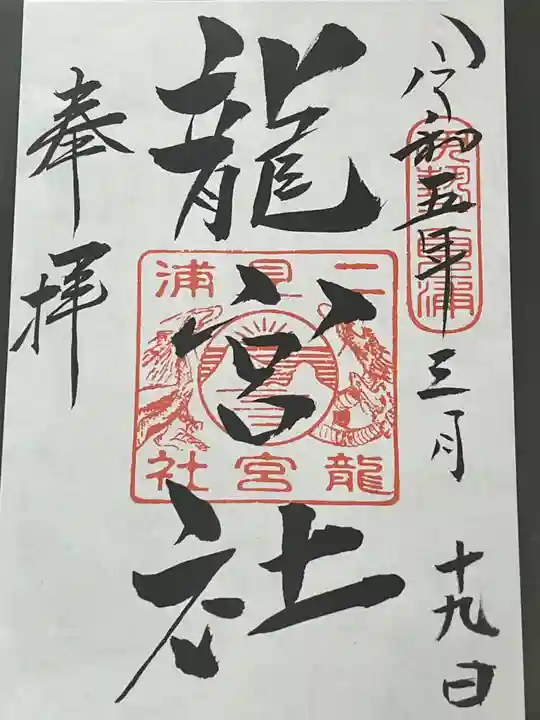 令和五年三月十九日
龍宮社
二見浦
龍宮社
奉拝